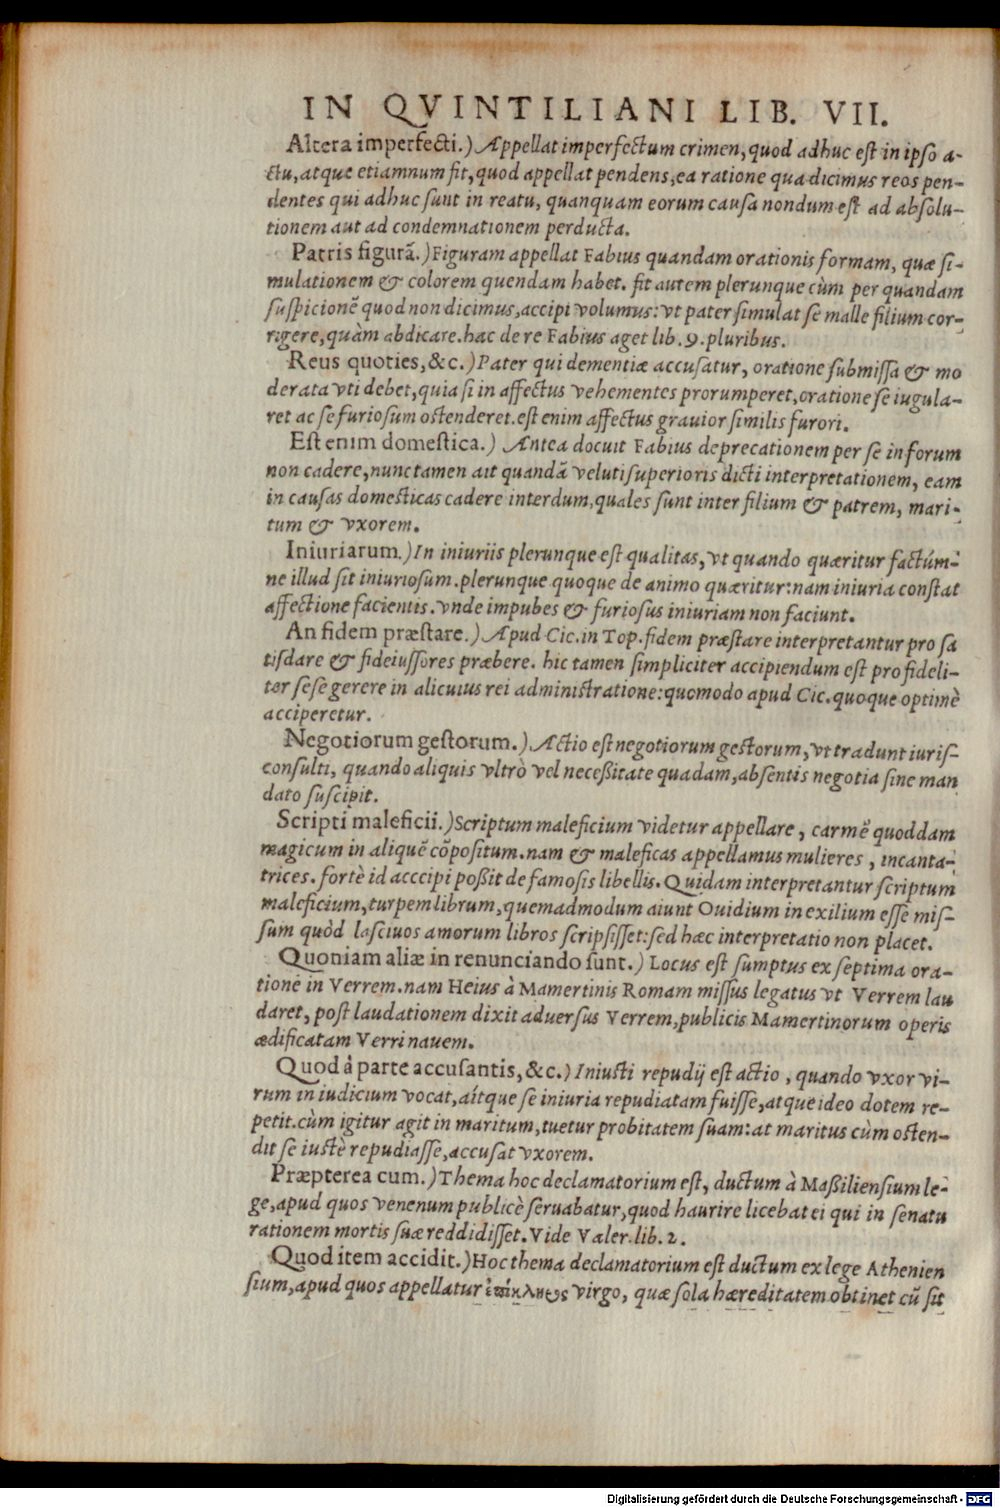 IN QVINTILIANI LIB. VII.
Altera imperfecti.) Appellat imperfectum crimen, quod adhuc est in ipso a-
ctu, atque etiamnum fit, quod appellat pendens, ea ratione qua dicimus reos pen-
dentes qui adhuc sunt in reatu, quanquam eorum causa nondum est ad absolu-
tionem aut ad condemnationem perducta.
Patris figurã.) Figuram appellat Fabius quandam orationis formam, quæ si-
mulationem & colorem quendam habet. fit autem plerunque cùm per quandam
suspicionẽ quod non dicimus, accipi volumus: vt pater simulat se malle filium cor-
rigere, quàm abdicare. hac de re Fabius aget lib. 9. pluribus.
Reus quoties, &c.) Pater qui dementiæ accusatur, oratione submissa & mo
derata vti debet, quia si in affectus vehementes prorumperet, oratione se iugula-
ret ac se furiosum ostenderet. est enim affectus grauior similis furori.
Est enim domestica.) Antea docuit Fabius deprecationem per se in forum
non cadere, nunc tamen ait quandã veluti superioris dicti interpretationem, eam
in causas domesticas cadere interdum, quales sunt inter filium & patrem, mari-
tum & vxorem.
Iniuriarum.) In iniuriis plerunque est qualitas, vt quando quæritur factúm-
ne illud sit iniuriosum. plerunque quoque de animo quæritur: nam iniuria constat
affectione facientis. vnde impubes & furiosus iniuriam non faciunt.
An fidem præstare.) Apud Cic. in Top. fidem præstare interpretantur pro sa
tisdare & fideiussores præbere. hic tamen simpliciter accipiendum est pro fideli-
ter sese gerere in alicuius rei administratione: quomodo apud Cic. quoque optimè
acciperetur.
Negotiorum gestorum.) Actio est negotiorum gestorum, vt tradunt iuris-
consulti, quando aliquis vltrò vel neceßitate quadam, absentis negotia sine man
dato suscipit.
Scripti maleficii.) Scriptum maleficium videtur appellare, carmẽ quoddam
magicum in aliquẽ cõpositum. nam & maleficas appellamus mulieres, incanta-
trices. fortè id acccipi poßit de famosis libellis. Quidam interpretantur scriptum
maleficium, turpem librum, quemadmodum aiunt Ouidium in exilium esse mis-
sum quòd lasciuos amorum libros scripsisset: sed hæc interpretatio non placet.
Quoniam aliæ in renunciando sunt.) Locus est sumptus ex septima ora-
tione in Verrem. nam Heius à Mamertinis Romam missus legatus vt Verrem lau
daret, post laudationem dixit aduersus Verrem, publicis Mamertinorum operis
ædificatam Verri nauem.
Quod à parte accusantis, &c.) Iniusti repudij est actio, quando vxor vi-
rum in iudicium vocat, aítque se iniuria repudiatam fuisse, atque ideo dotem re-
petit. cùm igitur agit in maritum, tuetur probitatem suam: at maritus cùm osten-
dit se iustè repudiasse, accusat vxorem.
Præpterea cum.) Thema hoc declamatorium est, ductum à Maßiliensium le-
ge, apud quos venenum publicè seruabatur, quod haurire licebat ei qui in senatu
rationem mortis suæ reddidisset. Vide Valer. lib. 2.
Quod item accidit.) Hoc thema declamatorium est ductum ex lege Athenien
sium, apud quos appellatur ἐπίκληρος virgo, quæ sola hæreditatem obtinet cũ sit
Digitalisierung gefördert durch die Deutsche Forschungsgemeinschaft - DFG